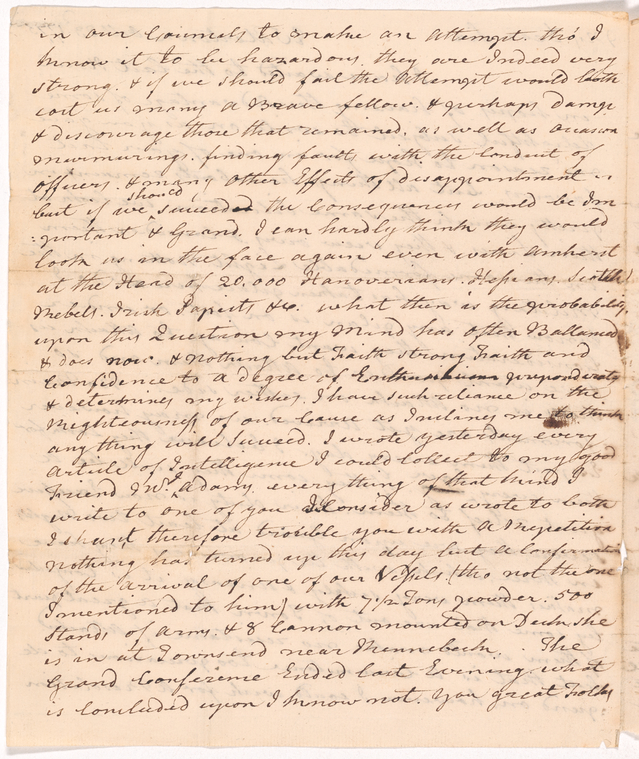 in our Councils to make an Attempt. tho' I
know it to be hazardous. they are Indeed very
strong. & if we should fail the Attempt would both
cost us many a Brave fellow. & perhaps damp
& discourage those that remained. as well as occasion
murmurings. finding faults with the Conduct of
Officers. & many other Effects of disappointment
but if we should succeed the Consequences would be Im
:portant & Grand. I can hardly think they would
look us in the face again even with Amherst
at the Head of 20.000 Hanoverians. Hessians. Scotch
Rebels. Irish Papists &c. what then is the probability.
upon this Question my Mind has often Ballanced
& does now. & nothing but Faith strong Faith and
Confidence to a degree of Enthusiasm preponderates
& determines my wishes. I have such reliance on the
Righteousness of our Cause as Inclines me to think
anything will succeed. I wrote yesterday every
Article of Intelligence I could Collect to my good
Friend Mrs. Adams. everything of that kind I
write to one of you I Consider as wrote to both
I shan't therefore trouble you with A Repetition
nothing has turned up this day but a Confirmation
of the arrival of one of our Vessels. (tho not the one
I mentioned to him) with 7 1/2 Tons powder. 500
Stands of Arms. & 8 Cannon mounted on Deck. she
is in at Townsend near Kennebeck. The
Grand Conference Ended last Evening. what
is Concluded upon I know not. You great Folks